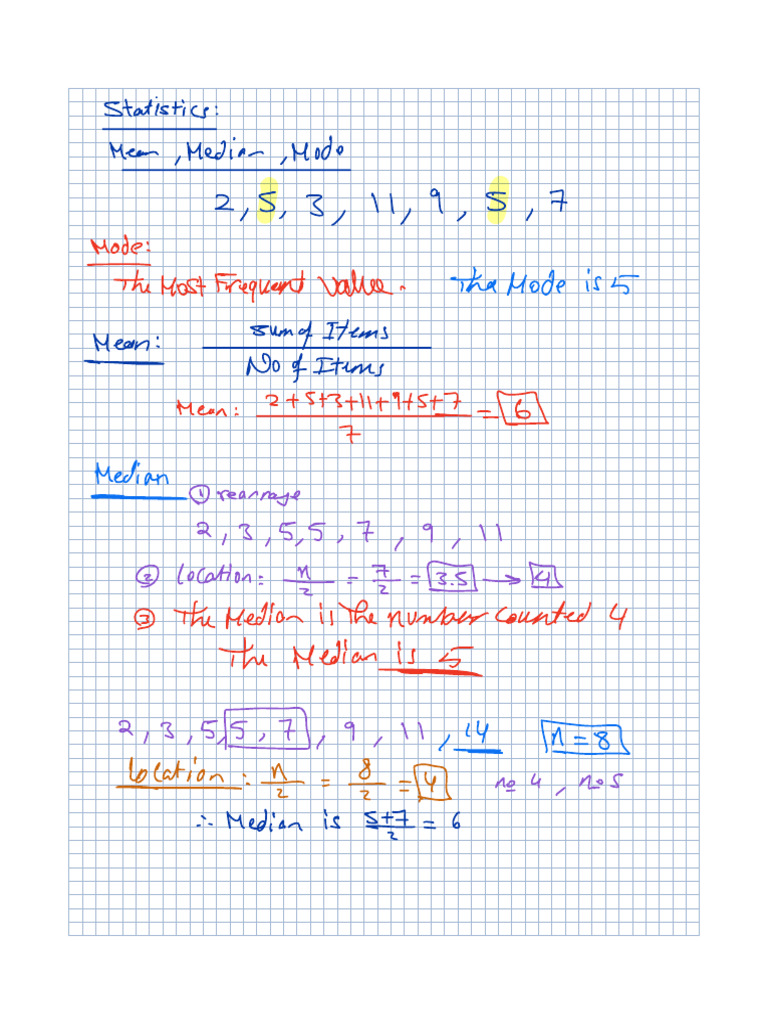 Statistics:
Mean, Median, Mode
2, 5, 3, 11, 9, 5, 7
Mode:
The Most Frequent Value. The Mode is 5
Mean: Sum of Items
No of Items
Mean: 2+5+3+11+9+5+7
7
= 6
Median
① rearrage
2, 3, 5, 5, 7, 9, 11
② location: n/2 = 7/2 = 3.5 → 4
③ The Median is the number counted 4
The Median is 5
2, 3, 5, 5, 7, 9, 11, 14 n=8
Location: n/2 = 8/2 = 4 no 4, no 5
∴ Median is 5+7/2 = 6